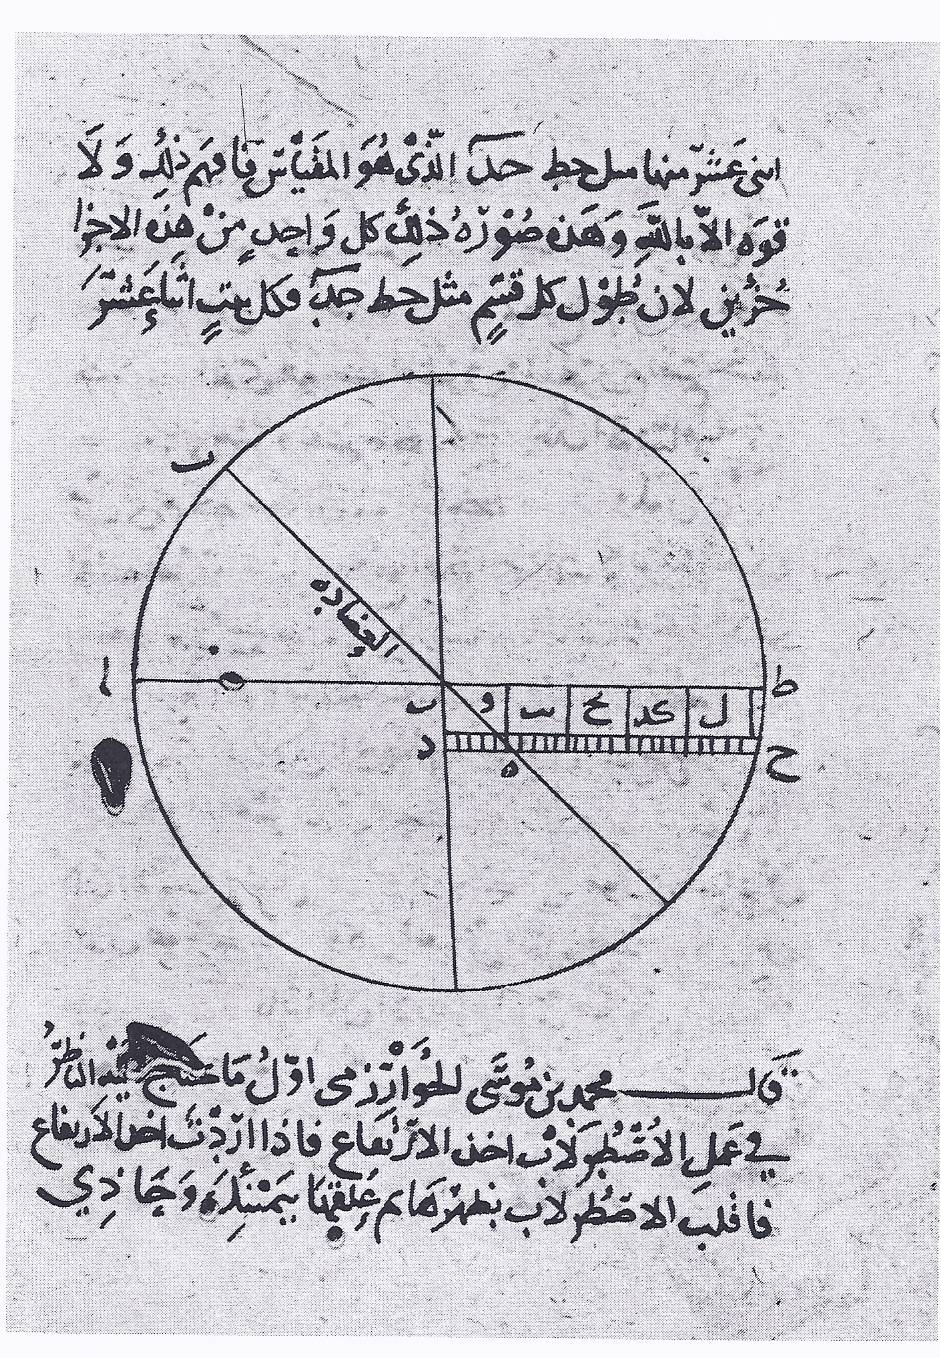 اثنى عَشَرَ منها مثل خط حد الّذىْ هُوَ المقيَاسْ فافهم ذَلِكَ وَلَا
قوه الاّ بالله وَهَذه صُوْرَة ذلِكَ كل وَاحِدٍ مِنْ هذِه الاجزا
جُزْين لان طُوْل كل قسْمٍ مثل خط جد وكل بيتٍ اثنا عَشَرَ
ب
العضاده
ا
ط
ب و ىب ىح كد ل
د
ح
ه
قال محمد بن مُوسَى الخُوَارزمى اوّل مَا يحتاج اليْه الناظِرُ
في عَمَلِ الاصْطُرلَابْ اخذ الارتفَاع فاذا ارَدْتَ اخذ الارتفاع
فاقلب الاصْطُرلاب بظهْرهَا ثم عَلقهَا بيَمْينكَ وَحَاذِي